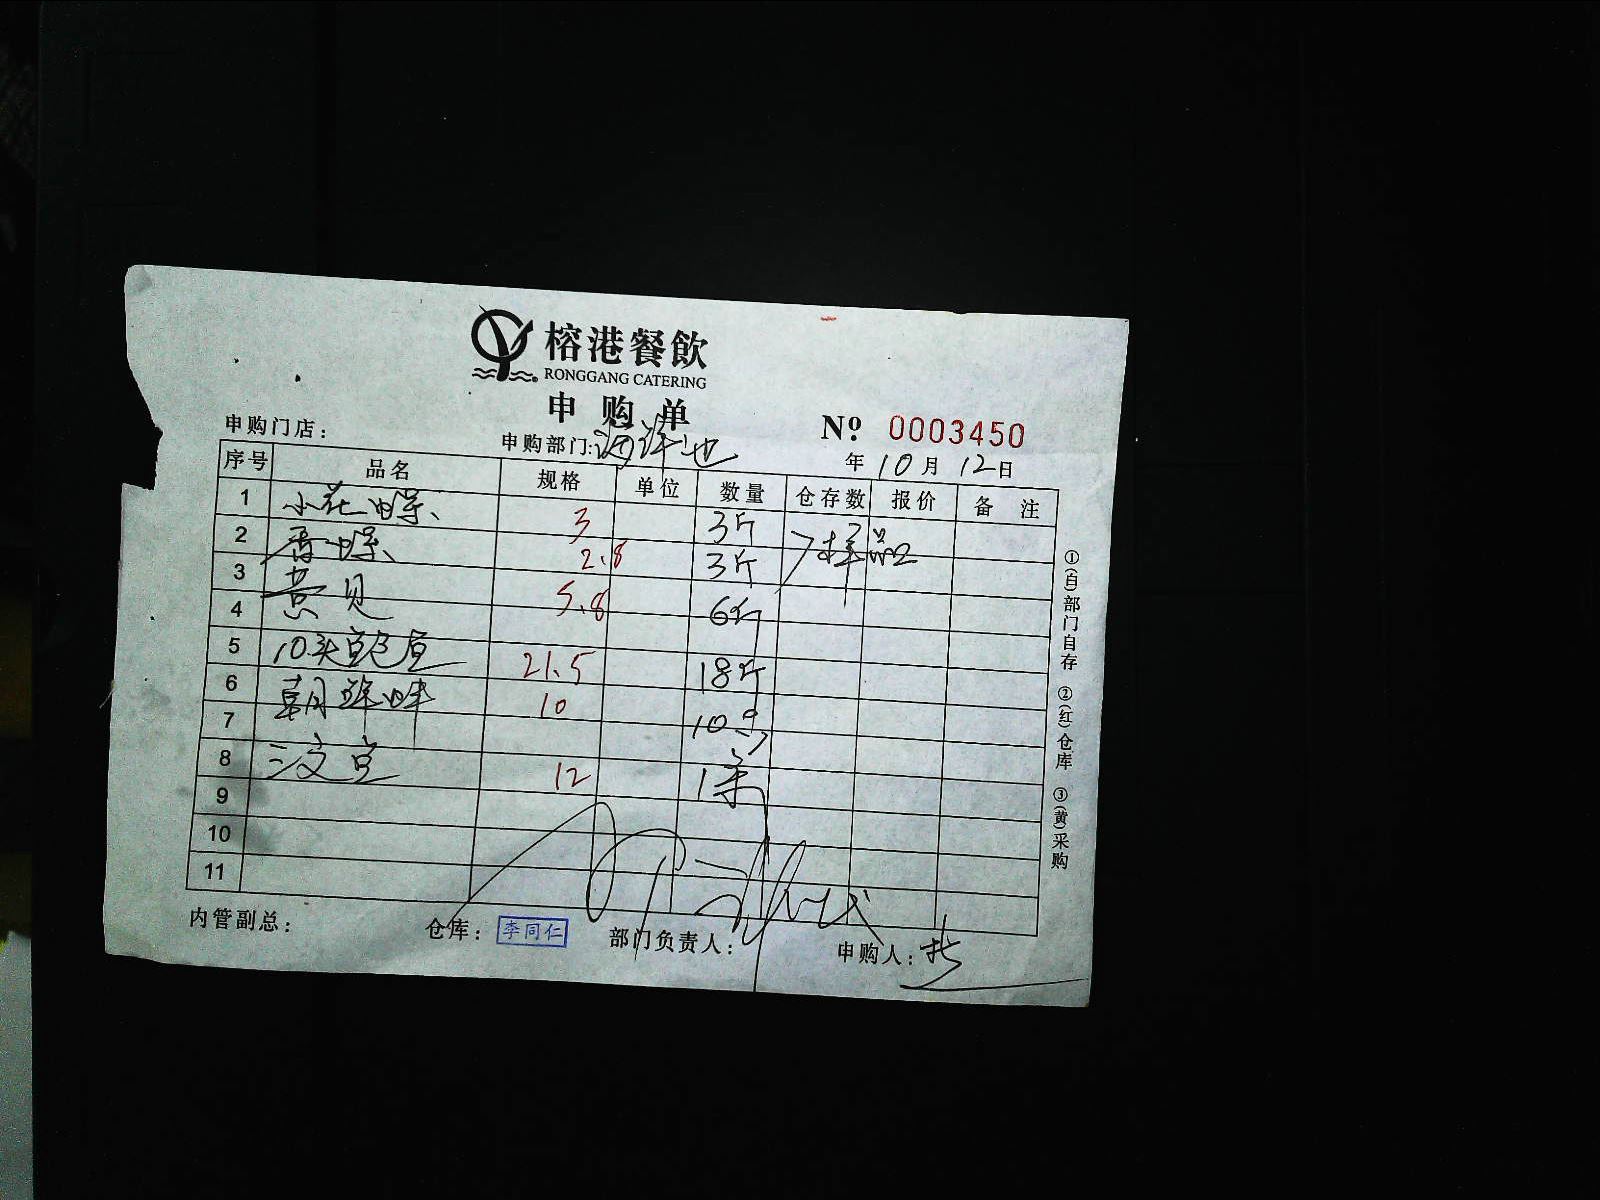 榕港餐飲
RONGGANG CATERING
申购单
№ 0003450
申购门店：
申购部门:海鲜池
年 10 月 12 日
序号 品名 规格 单位 数量 仓存数 报价 备注
1 小花螺 3 3斤
2 香螺 2.8 3斤 样品
3 黄贝 5.8 6斤
4
5 10头鲍鱼 21.5 18斤
6 朝珠蚌 10 10只
7
8 三文鱼 12 1条
9
10
11
①(白)部门自存 ②(红)仓库 ③(黄)采购
内管副总： 仓库：李同仁 部门负责人： 申购人：